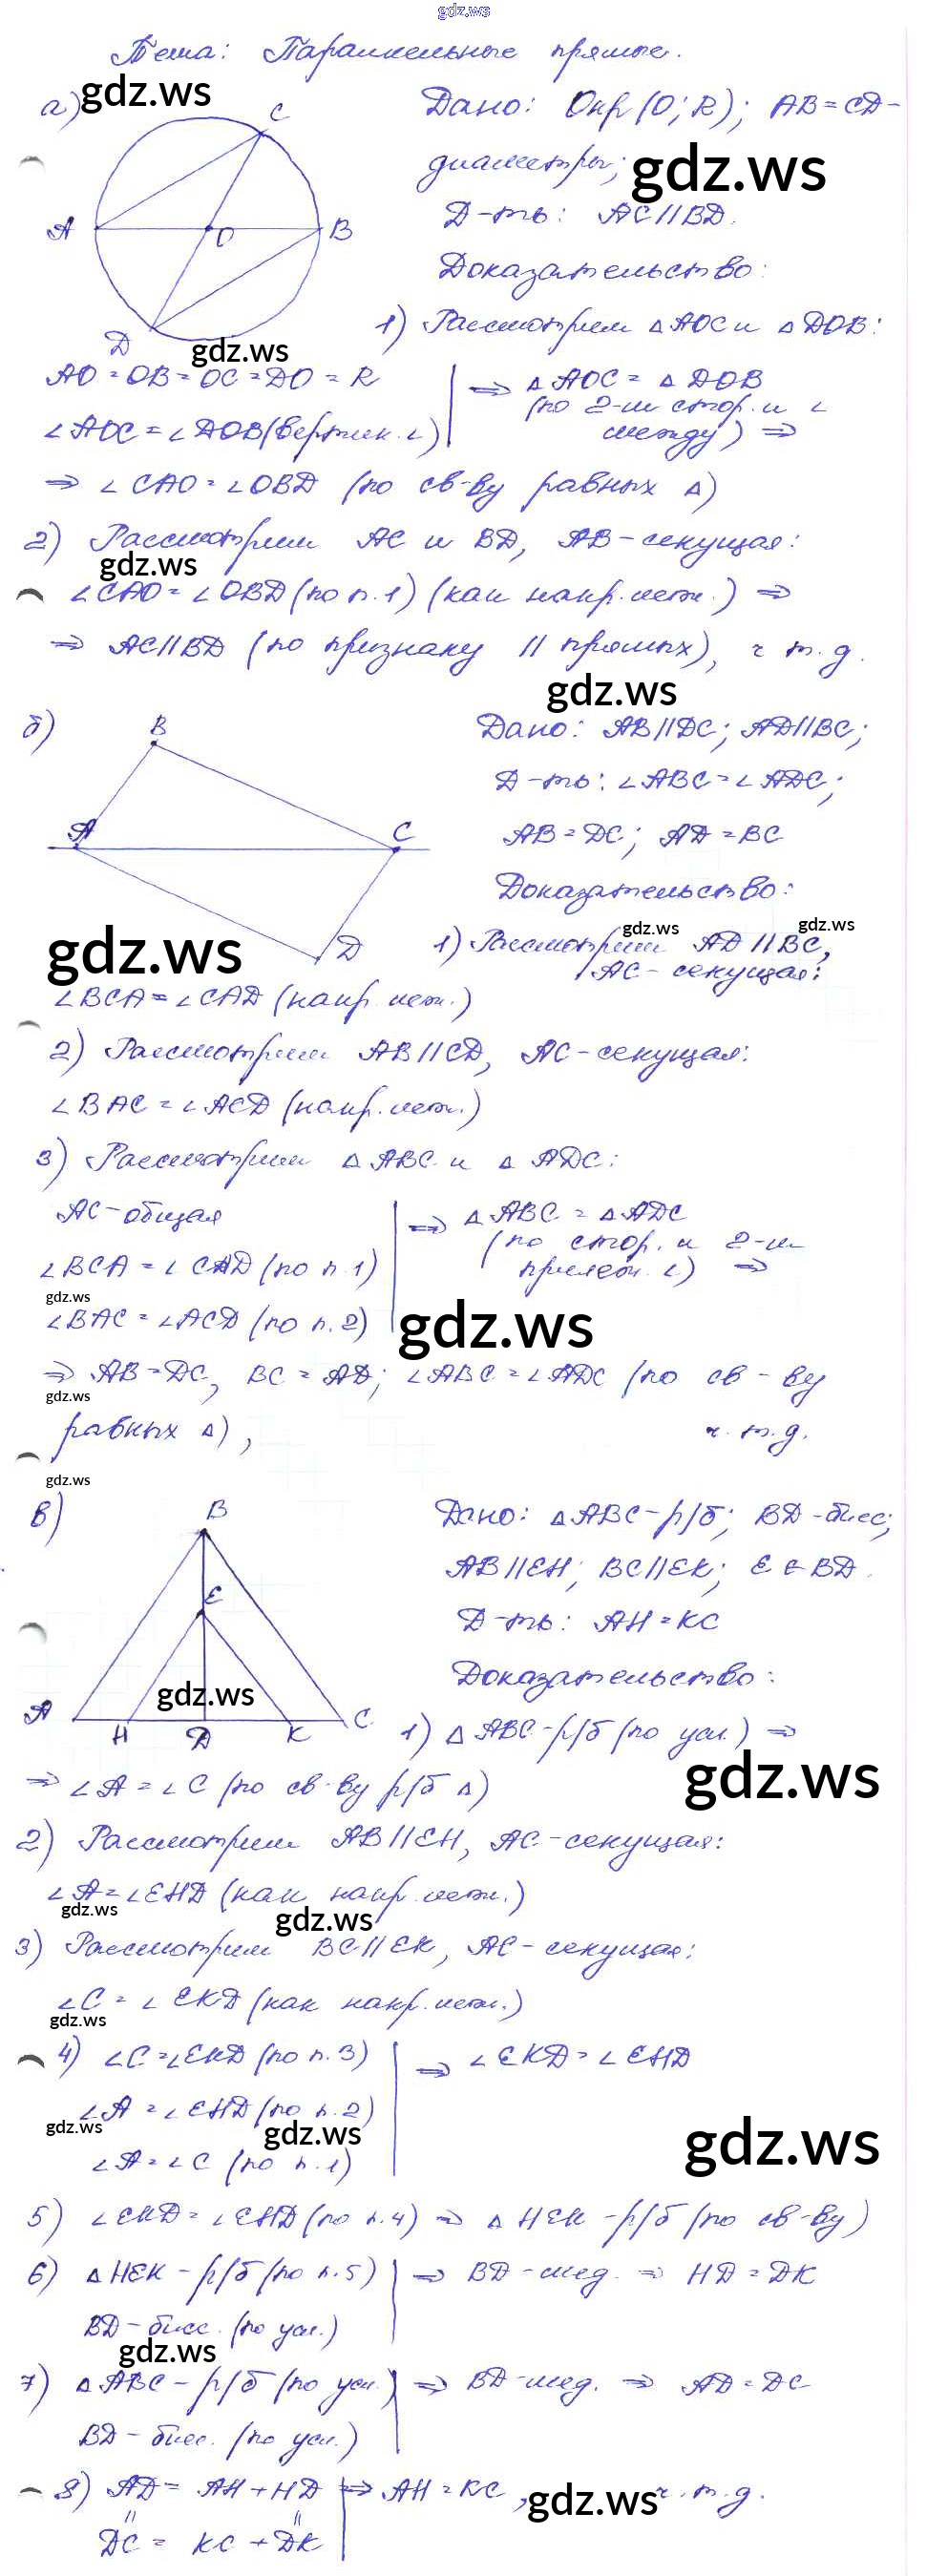 gdz.ws
Тема: Параллельные прямые.
а) gdz.ws
C
A
O
B
D
gdz.ws
Дано: Окр(О; R); AB = CD -
диаметры; gdz.ws
Д-ть: AC || BD.
Доказательство:
1) Рассмотрим △AOC и △DOB:
AO = OB = OC = DO = R | ⇒ △AOC = △DOB
(по 2-м стор. и ∠
∠AOC = ∠DOB (вертик. ∠) между) ⇒
⇒ ∠CAO = ∠OBD (по св-ву равных △)
2) Рассмотрим AC и BD, AB - секущая:
gdz.ws
∠CAO = ∠OBD (по п.1) (как накр. леж.) ⇒
⇒ AC || BD (по признаку || прямых), ч.т.д.
gdz.ws
б)
B
A
C
D
gdz.ws
Дано: AB || DC; AD || BC;
Д-ть: ∠ABC = ∠ADC;
AB = DC; AD = BC
Доказательство:
gdz.ws gdz.ws
1) Рассмотрим AD || BC,
AC - секущая:
∠BCA = ∠CAD (накр. леж.)
2) Рассмотрим AB || CD, AC - секущая:
∠BAC = ∠ACD (накр. леж.)
3) Рассмотрим △ABC и △ADC:
AC - общая | ⇒ △ABC = △ADC
(по стор. и 2-м
∠BCA = ∠CAD (по п.1) прилеж. ∠) ⇒
gdz.ws
∠BAC = ∠ACD (по п.2) gdz.ws
⇒ AB = DC, BC = AD; ∠ABC = ∠ADC (по св-ву
gdz.ws
равных △), ч.т.д.
gdz.ws
в)
B
E
gdz.ws
A
H
D
K
C
Дано: △ABC - р/б; BD - бисс;
AB || EH; BC || EK; E ∈ BD.
Д-ть: AH = KC
Доказательство:
1) △ABC - р/б (по усл.) ⇒
gdz.ws
⇒ ∠A = ∠C (по св-ву р/б △)
2) Рассмотрим AB || EH, AC - секущая:
∠A = ∠EHD (как накр. леж.)
gdz.ws gdz.ws
3) Рассмотрим BC || EK, AC - секущая:
∠C = ∠EKD (как накр. леж.)
gdz.ws
4) ∠C = ∠EKD (по п.3) | ⇒ ∠EKD = ∠EHD
∠A = ∠EHD (по п.2)
gdz.ws gdz.ws gdz.ws
∠A = ∠C (по п.1)
5) ∠EKD = ∠EHD (по п.4) ⇒ △HEK - р/б (по св-ву)
6) △HEK - р/б (по п.5) | ⇒ BD - мед. ⇒ HD = DK
BD - бисс. (по усл.)
gdz.ws
7) △ABC - р/б (по усл.) | ⇒ BD - мед. ⇒ AD = DC
BD - бисс. (по усл.)
8) AD = AH + HD | ⇒ AH = KC, gdz.ws ч.т.д.
|| ||
DC = KC + DK